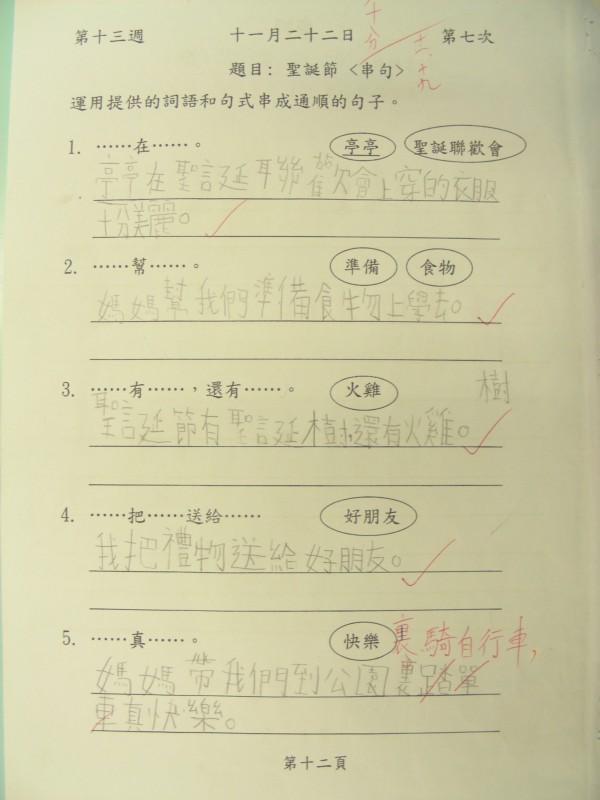 第十三週 十一月二十二日 第七次
十分
題目：聖誕節〈串句〉
運用提供的詞語和句式串成通順的句子。
1. ……在……。 亭亭 聖誕聯歡會
亭亭在聖誕聯歡會上穿的衣服
十分美麗。
2. ……幫……。 準備 食物
媽媽幫我們準備食物上學去。
3. ……有……，還有……。 火雞 樹
聖誕節有聖誕樹，還有火雞。
4. ……把……送給…… 好朋友
我把禮物送給好朋友。
5. ……真……。 快樂 裏騎自行車，
媽媽帶我們到公園裏踏單
車真快樂。
第十二頁